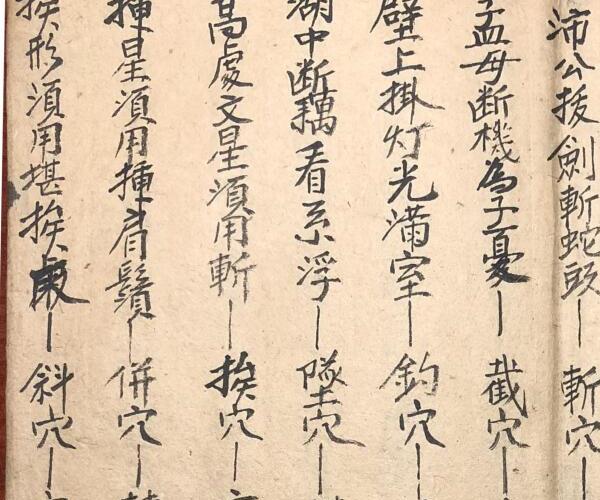 沛公拔劍斬蛇頭—斬穴—
孟母断機為子憂—截穴—
壁上掛灯光满室—釣穴—
湖中断藕看系浮—墜穴—
高處文星須用斬—挨穴—
揷星須用揷肩鬚—併穴—
挨形須用堪挨處—斜穴—